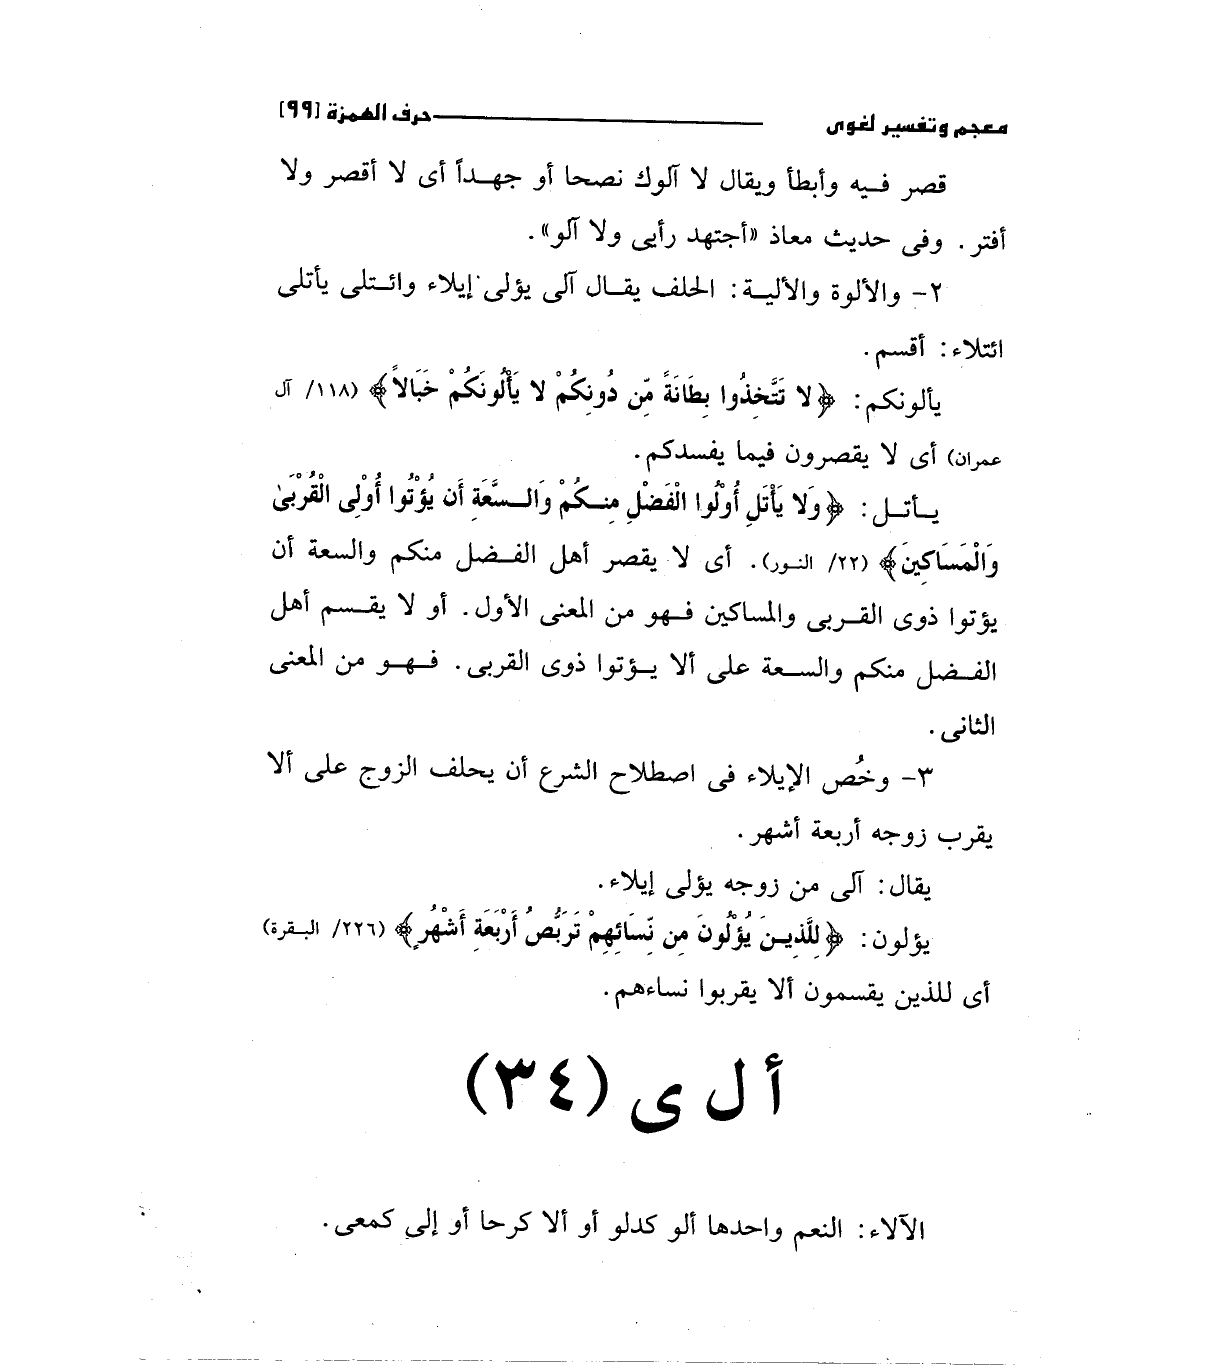 معجم وتفسير لغوى حرف الهمزة [٩٩]
قصر فيه وأبطأ ويقال لا آلوك نصحا أو جهداً أى لا أقصر ولا
أفتر. وفى حديث معاذ «أجتهد رأيى ولا آلو».
٢- والألوة والألية: الحلف يقال آلى يؤلى إيلاء وائتلى يأتلى
ائتلاء: أقسم.
يألونكم: ﴿لا تَتَّخِذُوا بِطَانَةً مِّن دُونِكُمْ لا يَأْلُونَكُمْ خَبَالاً﴾ (١١٨/ آل
عمران) أى لا يقصرون فيما يفسدكم.
يأتل: ﴿وَلا يَأْتَلِ أُوْلُوا الْفَضْلِ مِنكُمْ وَالسَّعَةِ أَن يُؤْتُوا أُوْلِى الْقُرْبَىٰ
وَالْمَسَاكِينَ﴾ (٢٢/ النور). أى لا يقصر أهل الفضل منكم والسعة أن
يؤتوا ذوى القربى والمساكين فهو من المعنى الأول. أو لا يقسم أهل
الفضل منكم والسعة على ألا يؤتوا ذوى القربى. فهو من المعنى
الثانى.
٣- وخُص الإيلاء فى اصطلاح الشرع أن يحلف الزوج على ألا
يقرب زوجه أربعة أشهر.
يقال: آلى من زوجه يؤلى إيلاء.
يؤلون: ﴿لِلَّذِينَ يُؤْلُونَ مِن نِّسَائِهِمْ تَرَبُّصُ أَرْبَعَةِ أَشْهُرٍ﴾ (٢٢٦/ البقرة)
أى للذين يقسمون ألا يقربوا نساءهم.
أ ل ى (٣٤)
الآلاء: النعم واحدها ألو كدلو أو ألا كرحا أو إلى كمعى.